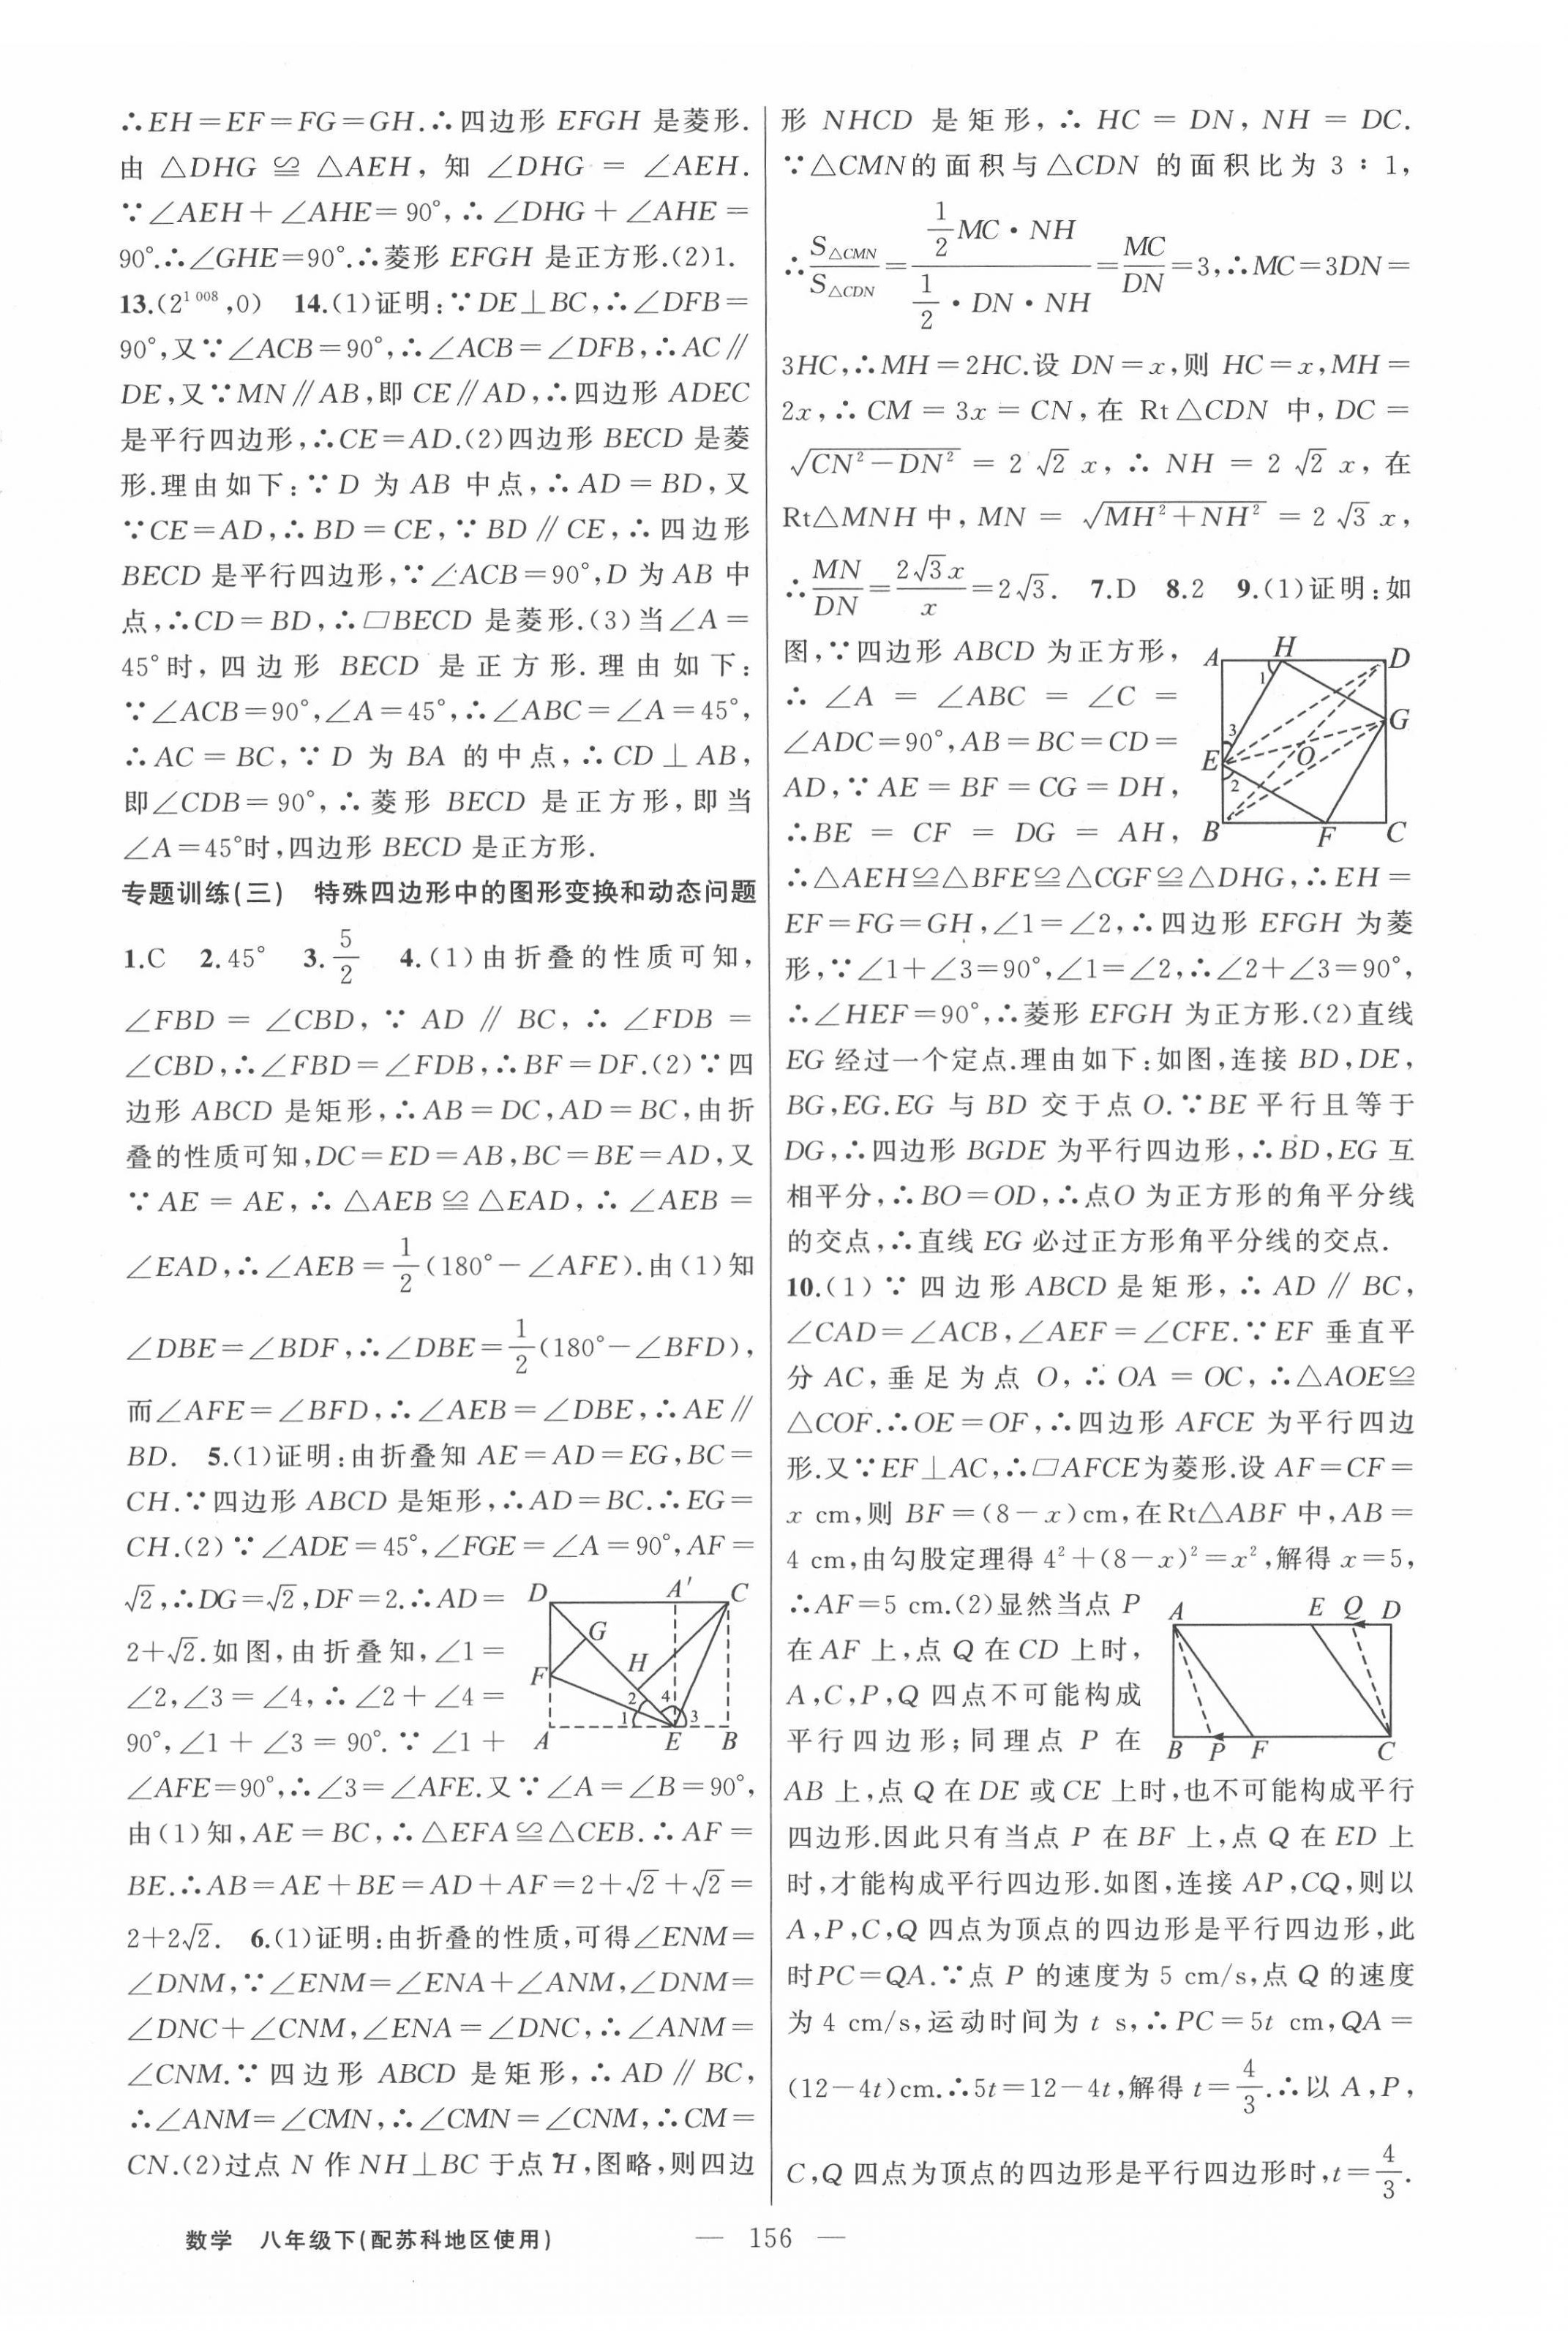 ∴EH=EF=FG=GH.∴四边形 EFGH 是菱形.
由 △DHG ≌ △AEH, 知 ∠DHG = ∠AEH.
∵∠AEH+∠AHE=90°,∴∠DHG+∠AHE=
90°.∴∠GHE=90°.∴菱形 EFGH 是正方形.(2)1.
13.(2^{1 008},0) 14.(1)证明:∵DE⊥BC,∴∠DFB=
90°,又∵∠ACB=90°,∴∠ACB=∠DFB,∴AC∥
DE,又∵MN∥AB,即 CE∥AD,∴四边形 ADEC
是平行四边形,∴CE=AD.(2)四边形 BECD 是菱
形.理由如下:∵D 为 AB 中点,∴AD=BD,又
∵CE=AD,∴BD=CE,∵BD∥CE,∴四边形
BECD 是平行四边形,∵∠ACB=90°,D 为 AB 中
点,∴CD=BD,∴▱BECD 是菱形.(3)当∠A=
45°时,四边形 BECD 是正方形.理由如下:
∵∠ACB=90°,∠A=45°,∴∠ABC=∠A=45°,
∴AC=BC,∵D 为 BA 的中点,∴CD⊥AB,
即∠CDB=90°,∴菱形 BECD 是正方形,即当
∠A=45°时,四边形 BECD 是正方形.
专题训练(三) 特殊四边形中的图形变换和动态问题
1.C 2.45° 3.5/2 4.(1)由折叠的性质可知,
∠FBD = ∠CBD, ∵ AD ∥ BC, ∴ ∠FDB =
∠CBD,∴∠FBD=∠FDB,∴BF=DF.(2)∵四
边形 ABCD 是矩形,∴AB=DC,AD=BC,由折
叠的性质可知,DC=ED=AB,BC=BE=AD,又
∵AE=AE,∴△AEB≌△EAD,∴∠AEB=
∠EAD,∴∠AEB=1/2(180°-∠AFE).由(1)知
∠DBE=∠BDF,∴∠DBE=1/2(180°-∠BFD),
而∠AFE=∠BFD,∴∠AEB=∠DBE,∴AE∥
BD. 5.(1)证明:由折叠知 AE=AD=EG,BC=
CH.∵四边形 ABCD 是矩形,∴AD=BC.∴EG=
CH.(2)∵∠ADE=45°,∠FGE=∠A=90°,AF=
√2,∴DG=√2,DF=2.∴AD=
2+√2.如图,由折叠知,∠1=
∠2,∠3=∠4,∴∠2+∠4=
90°,∠1+∠3=90°.∵∠1+
D A' C G H F 2 4 1 3 A E B
∠AFE=90°,∴∠3=∠AFE.又∵∠A=∠B=90°,
由(1)知,AE=BC,∴△EFA≌△CEB.∴AF=
BE.∴AB=AE+BE=AD+AF=2+√2+√2=
2+2√2. 6.(1)证明:由折叠的性质,可得∠ENM=
∠DNM,∵∠ENM=∠ENA+∠ANM,∠DNM=
∠DNC+∠CNM,∠ENA=∠DNC,∴∠ANM=
∠CNM.∵四边形 ABCD 是矩形,∴AD∥BC,
∴∠ANM=∠CMN,∴∠CMN=∠CNM,∴CM=
CN.(2)过点 N 作 NH⊥BC 于点 H,图略,则四边
形 NHCD 是矩形,∴ HC = DN, NH = DC.
∵△CMN的面积与△CDN 的面积比为 3∶1,
∴S△CMN/S△CDN=(1/2 MC·NH)/(1/2·DN·NH)=MC/DN=3,∴MC=3DN=
3HC,∴MH=2HC.设 DN=x,则 HC=x,MH=
2x,∴CM=3x=CN,在 Rt△CDN 中,DC=
√(CN²-DN²) = 2√2 x, ∴ NH = 2√2 x, 在
Rt△MNH 中, MN = √(MH²+NH²) = 2√3 x,
∴MN/DN=2√3x/x=2√3. 7.D 8.2 9.(1)证明:如
图,∵四边形 ABCD 为正方形,
∴ ∠A = ∠ABC = ∠C =
∠ADC=90°,AB=BC=CD=
AD,∵AE=BF=CG=DH,
∴BE = CF = DG = AH,
A H D 1 G 3 E O 2 B F C
∴△AEH≌△BFE≌△CGF≌△DHG,∴EH=
EF=FG=GH,∠1=∠2,∴四边形 EFGH 为菱
形,∵∠1+∠3=90°,∠1=∠2,∴∠2+∠3=90°,
∴∠HEF=90°,∴菱形 EFGH 为正方形.(2)直线
EG 经过一个定点.理由如下:如图,连接 BD,DE,
BG,EG.EG 与 BD 交于点 O.∵BE 平行且等于
DG,∴四边形 BGDE 为平行四边形,∴BD,EG 互
相平分,∴BO=OD,∴点O 为正方形的角平分线
的交点,∴直线 EG 必过正方形角平分线的交点.
10.(1)∵四边形 ABCD 是矩形,∴AD∥BC,
∠CAD=∠ACB,∠AEF=∠CFE.∵EF 垂直平
分 AC,垂足为点 O,∴OA=OC,∴△AOE≌
△COF.∴OE=OF,∴四边形 AFCE 为平行四边
形.又∵EF⊥AC,∴▱AFCE为菱形.设 AF=CF=
x cm,则 BF=(8-x)cm,在Rt△ABF 中,AB=
4 cm,由勾股定理得 4²+(8-x)²=x²,解得 x=5,
∴AF=5 cm.(2)显然当点 P
在 AF 上,点 Q 在 CD 上时,
A,C,P,Q 四点不可能构成
平行四边形;同理点 P 在
A E Q D B P F C
AB 上,点 Q 在 DE 或 CE 上时,也不可能构成平行
四边形.因此只有当点 P 在 BF 上,点 Q 在 ED 上
时,才能构成平行四边形.如图,连接 AP,CQ,则以
A,P,C,Q 四点为顶点的四边形是平行四边形,此
时PC=QA.∵点 P 的速度为 5 cm/s,点 Q 的速度
为 4 cm/s,运动时间为 t s,∴PC=5t cm,QA=
(12-4t)cm.∴5t=12-4t,解得 t=4/3.∴以 A,P,
C,Q 四点为顶点的四边形是平行四边形时,t=4/3.
数学 八年级下(配苏科地区使用) — 156 —